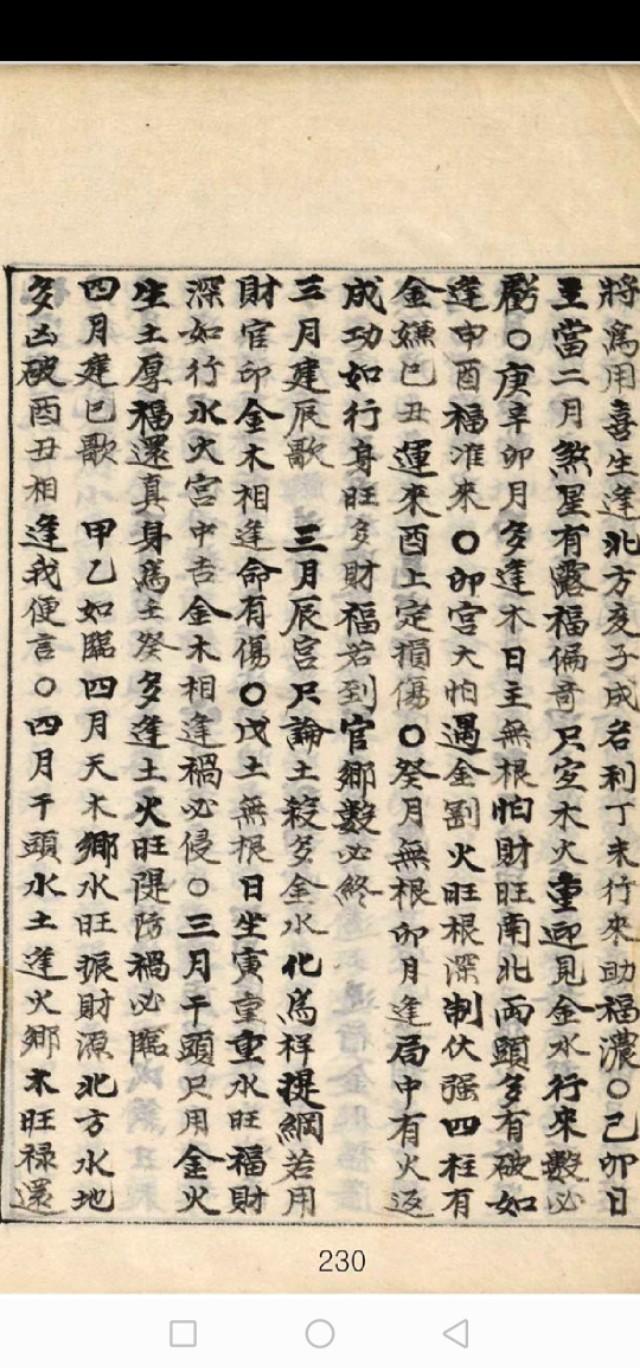 將爲用喜生逢北方亥子成名利丁未行來助福濃○己卯日
主當二月煞星有露福偏奇只宜木火重迎見金水行來數必
虧○庚辛卯月多逢木日主無根怕財旺南北兩頭多有破如
逢申酉福淮來○卯宮大怕遇金割火旺根深制伏强四柱有
金嫌巳丑運來酉上定損傷○癸月無根卯月逢局中有火返
成功如行身旺多財福若到官鄉數必終
三月建辰歌 三月辰宮只論土殺多金水化爲祥提綱若用
財官印金木相逢命有傷○戊土無根日坐寅重重水旺福財
深如行水火宮中吉金木相逢禍必侵○三月干頭只用金火
生土厚福還真身爲壬癸多逢土火旺隄防禍必臨
四月建巳歌 甲乙如臨四月天木鄉水旺振財源北方水地
多凶破酉丑相逢我便言○四月干頭水土逢火鄉木旺禄還
230